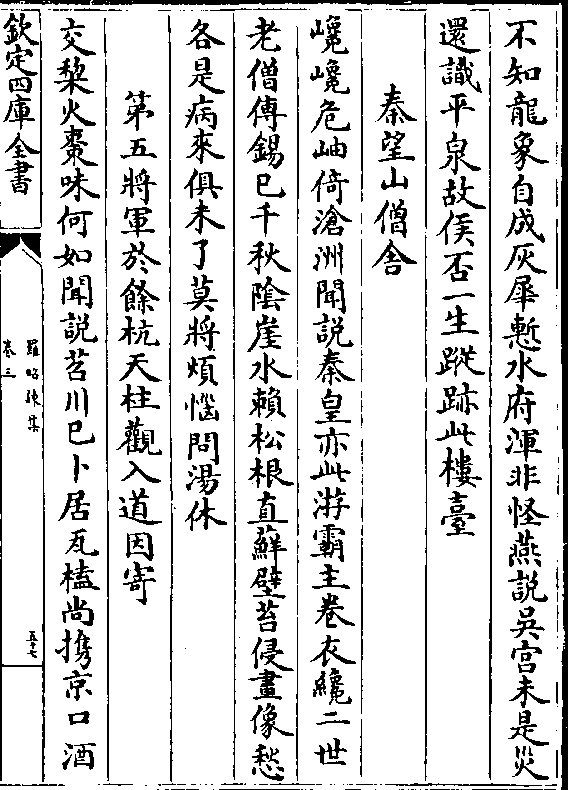 不知龍象自成灰犀慙水府渾非怪燕說吳宮未是災
還識平泉故侯否一生蹤跡此樓臺
秦望山僧舍
巉巉危岫倚滄洲聞說秦皇亦此游霸主卷衣纔二世
老僧傳錫已千秋陰崖水賴松根直蘚壁苔侵畫像愁
各是病來俱未了莫將煩惱問湯休
第五將軍於餘杭天柱觀入道因寄
交棃火棗味何如聞說苕川已卜居瓦榼尚携京口酒
欽定四庫全書
羅昭諫集
卷三
五十七